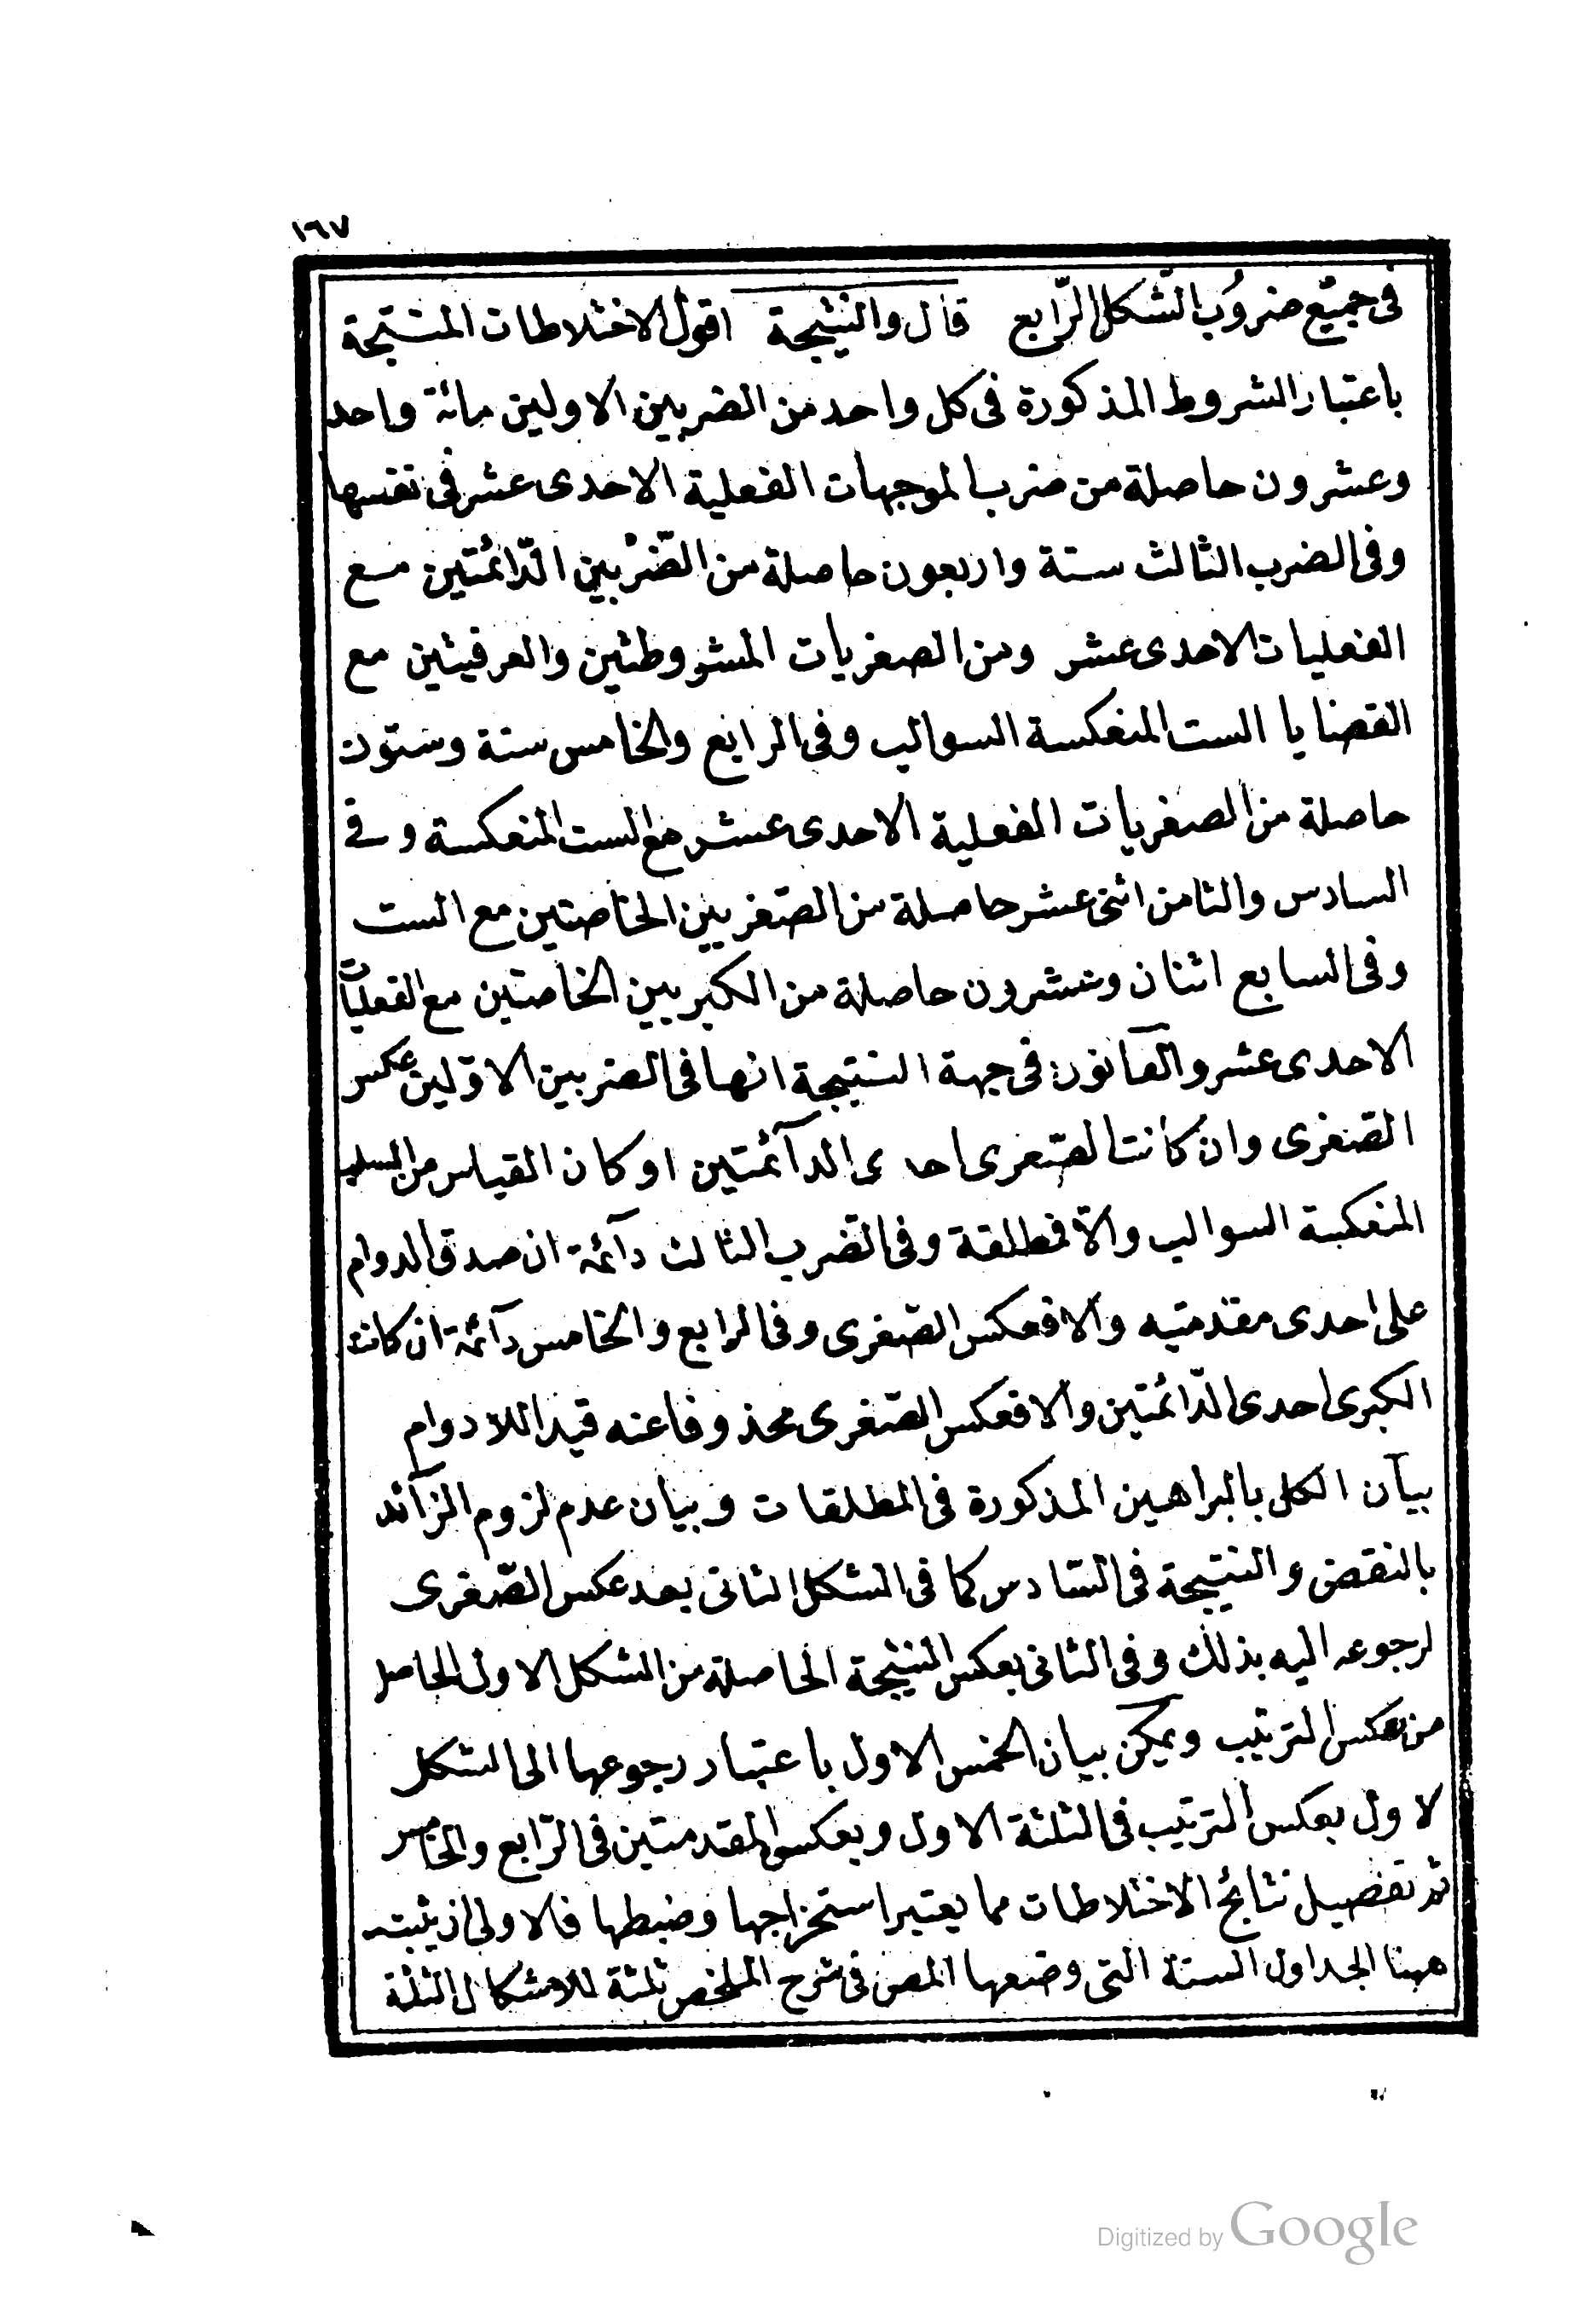 ١٦٧
فى جميع ضروب الشكل الرابع قال والنتيجة اقول الاختلاطات المنتجة
باعتبار الشروط المذكورة فى كل واحد من الضربين الاولين مائة واحد
وعشرون حاصلة من ضرب الموجهات الفعلية الاحدى عشر فى نفسها
وفى الضرب الثالث ستة واربعون حاصلة من الضربين الدائمتين مع
الفعليات الاحدى عشر ومن الصغريات المشروطتين والعرفيتين مع
القضايا الست المنعكسة السوالب وفى الرابع والخامس ستة وستون
حاصلة من الصغريات الفعلية الاحدى عشر مع الست المنعكسة وفى
السادس والثامن اثنى عشر حاصلة من الصغريين الخاصتين مع الست
وفى السابع اثنان وعشرون حاصلة من الكبريين الخاصتين مع الفعليات
الاحدى عشر والقانون فى جهة النتيجة انها فى الضربين الاولين عكس
الصغرى وان كانت الصغرى احدى الدآئمتين او كان القياس من الست
المنعكسة السوالب والا فمطلقة وفى الضرب الثالث دآئمة ان صدق الدوام
على احدى مقدمتيه والا فعكس الصغرى وفى الرابع والخامس دآئمة ان كانت
الكبرى احدى الدائمتين والا فعكس الصغرى محذوفا عنه قيد اللادوام
بيآن الكل بالبراهين المذكورة فى المطلقات وبيان عدم لزوم الزآئد
بالنقض والنتيجة فى السادس كما فى الشكل الثانى بعد عكس الصغرى
لرجوعه اليه بذلك وفى الثانى بعكس النتيجة الحاصلة من الشكل الاول الحاصل
من عكس الترتيب ويمكن بيان الخمس الاول باعتبار رجوعها الى الشكل
لاول بعكس الترتيب فى الثلثة الاول وبعكس المقدمتين فى الرابع والخامس
ثم تفصيل نتائج الاختلاطات مما يعتبر استخراجها وضبطها فالاولى ان يثبت
ههنا الجداول الستة التى وضعها المص فى شرح الملخص ثلثة للاشكال الثلثة
Digitized by Google